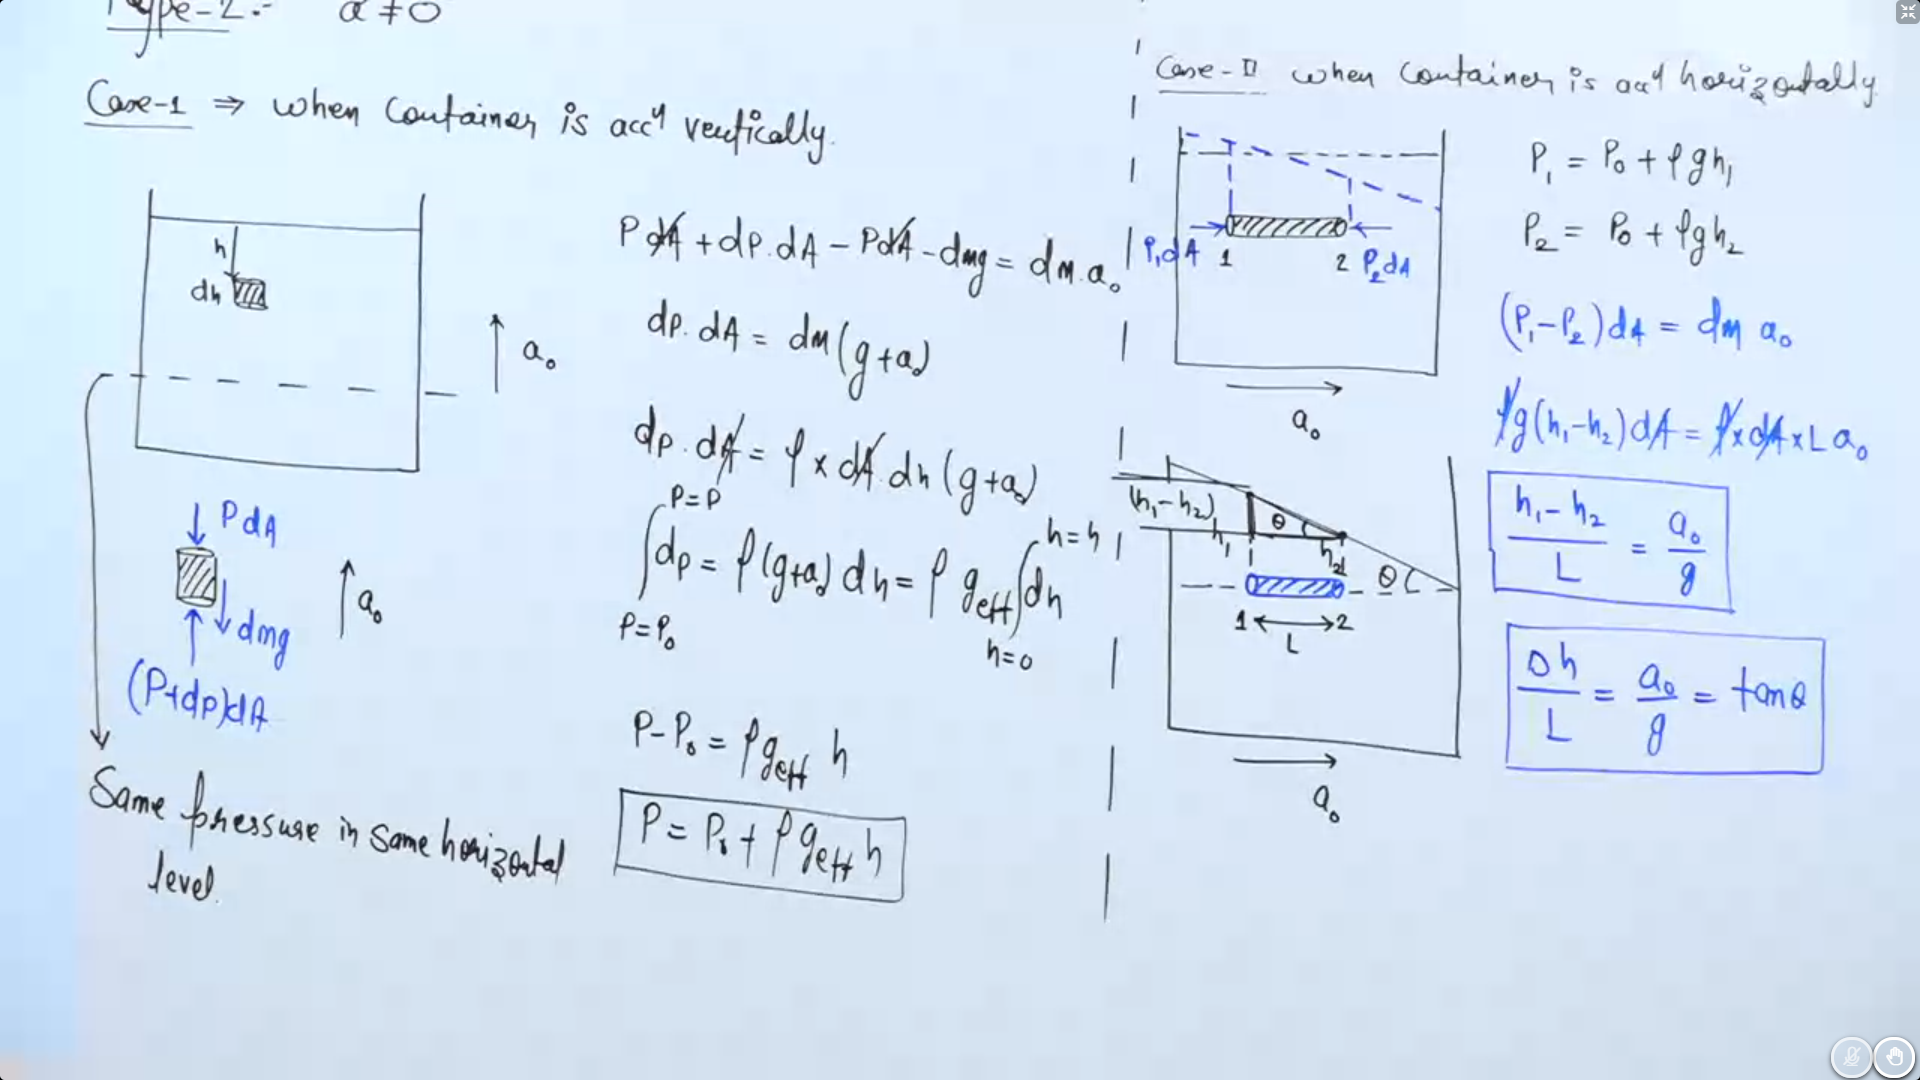 Type-2:- a ≠ 0
Case-1 ⇒ when Container is accⁿ vertically.
h
dh
a₀
P dA
dmg
a₀
(P+dp)dA
Same pressure in same horizontal
level.
P dA + dp. dA - PdA - dmg = dm. a₀
dp. dA = dm (g+a₀)
dp. dA = ρ x dA. dh (g+a₀)
P=P
∫dp = ρ(g+a₀) dh = ρ geff ∫dh
h=h
P=P₀
h=0
P-P₀ = ρ geff h
P = P₀ + ρ geff h
Case-II when Container is accⁿ horizontally.
P₁dA 1 2 P₂dA
a₀
P₁ = P₀ + ρgh₁
P₂ = P₀ + ρgh₂
(P₁-P₂)dA = dm a₀
ρg(h₁-h₂)dA = ρxdA x L a₀
(h₁-h₂)
h₁
θ
h₂
θ
1 2
L
a₀
h₁-h₂ / L = a₀ / g
Δh / L = a₀ / g = tanθ